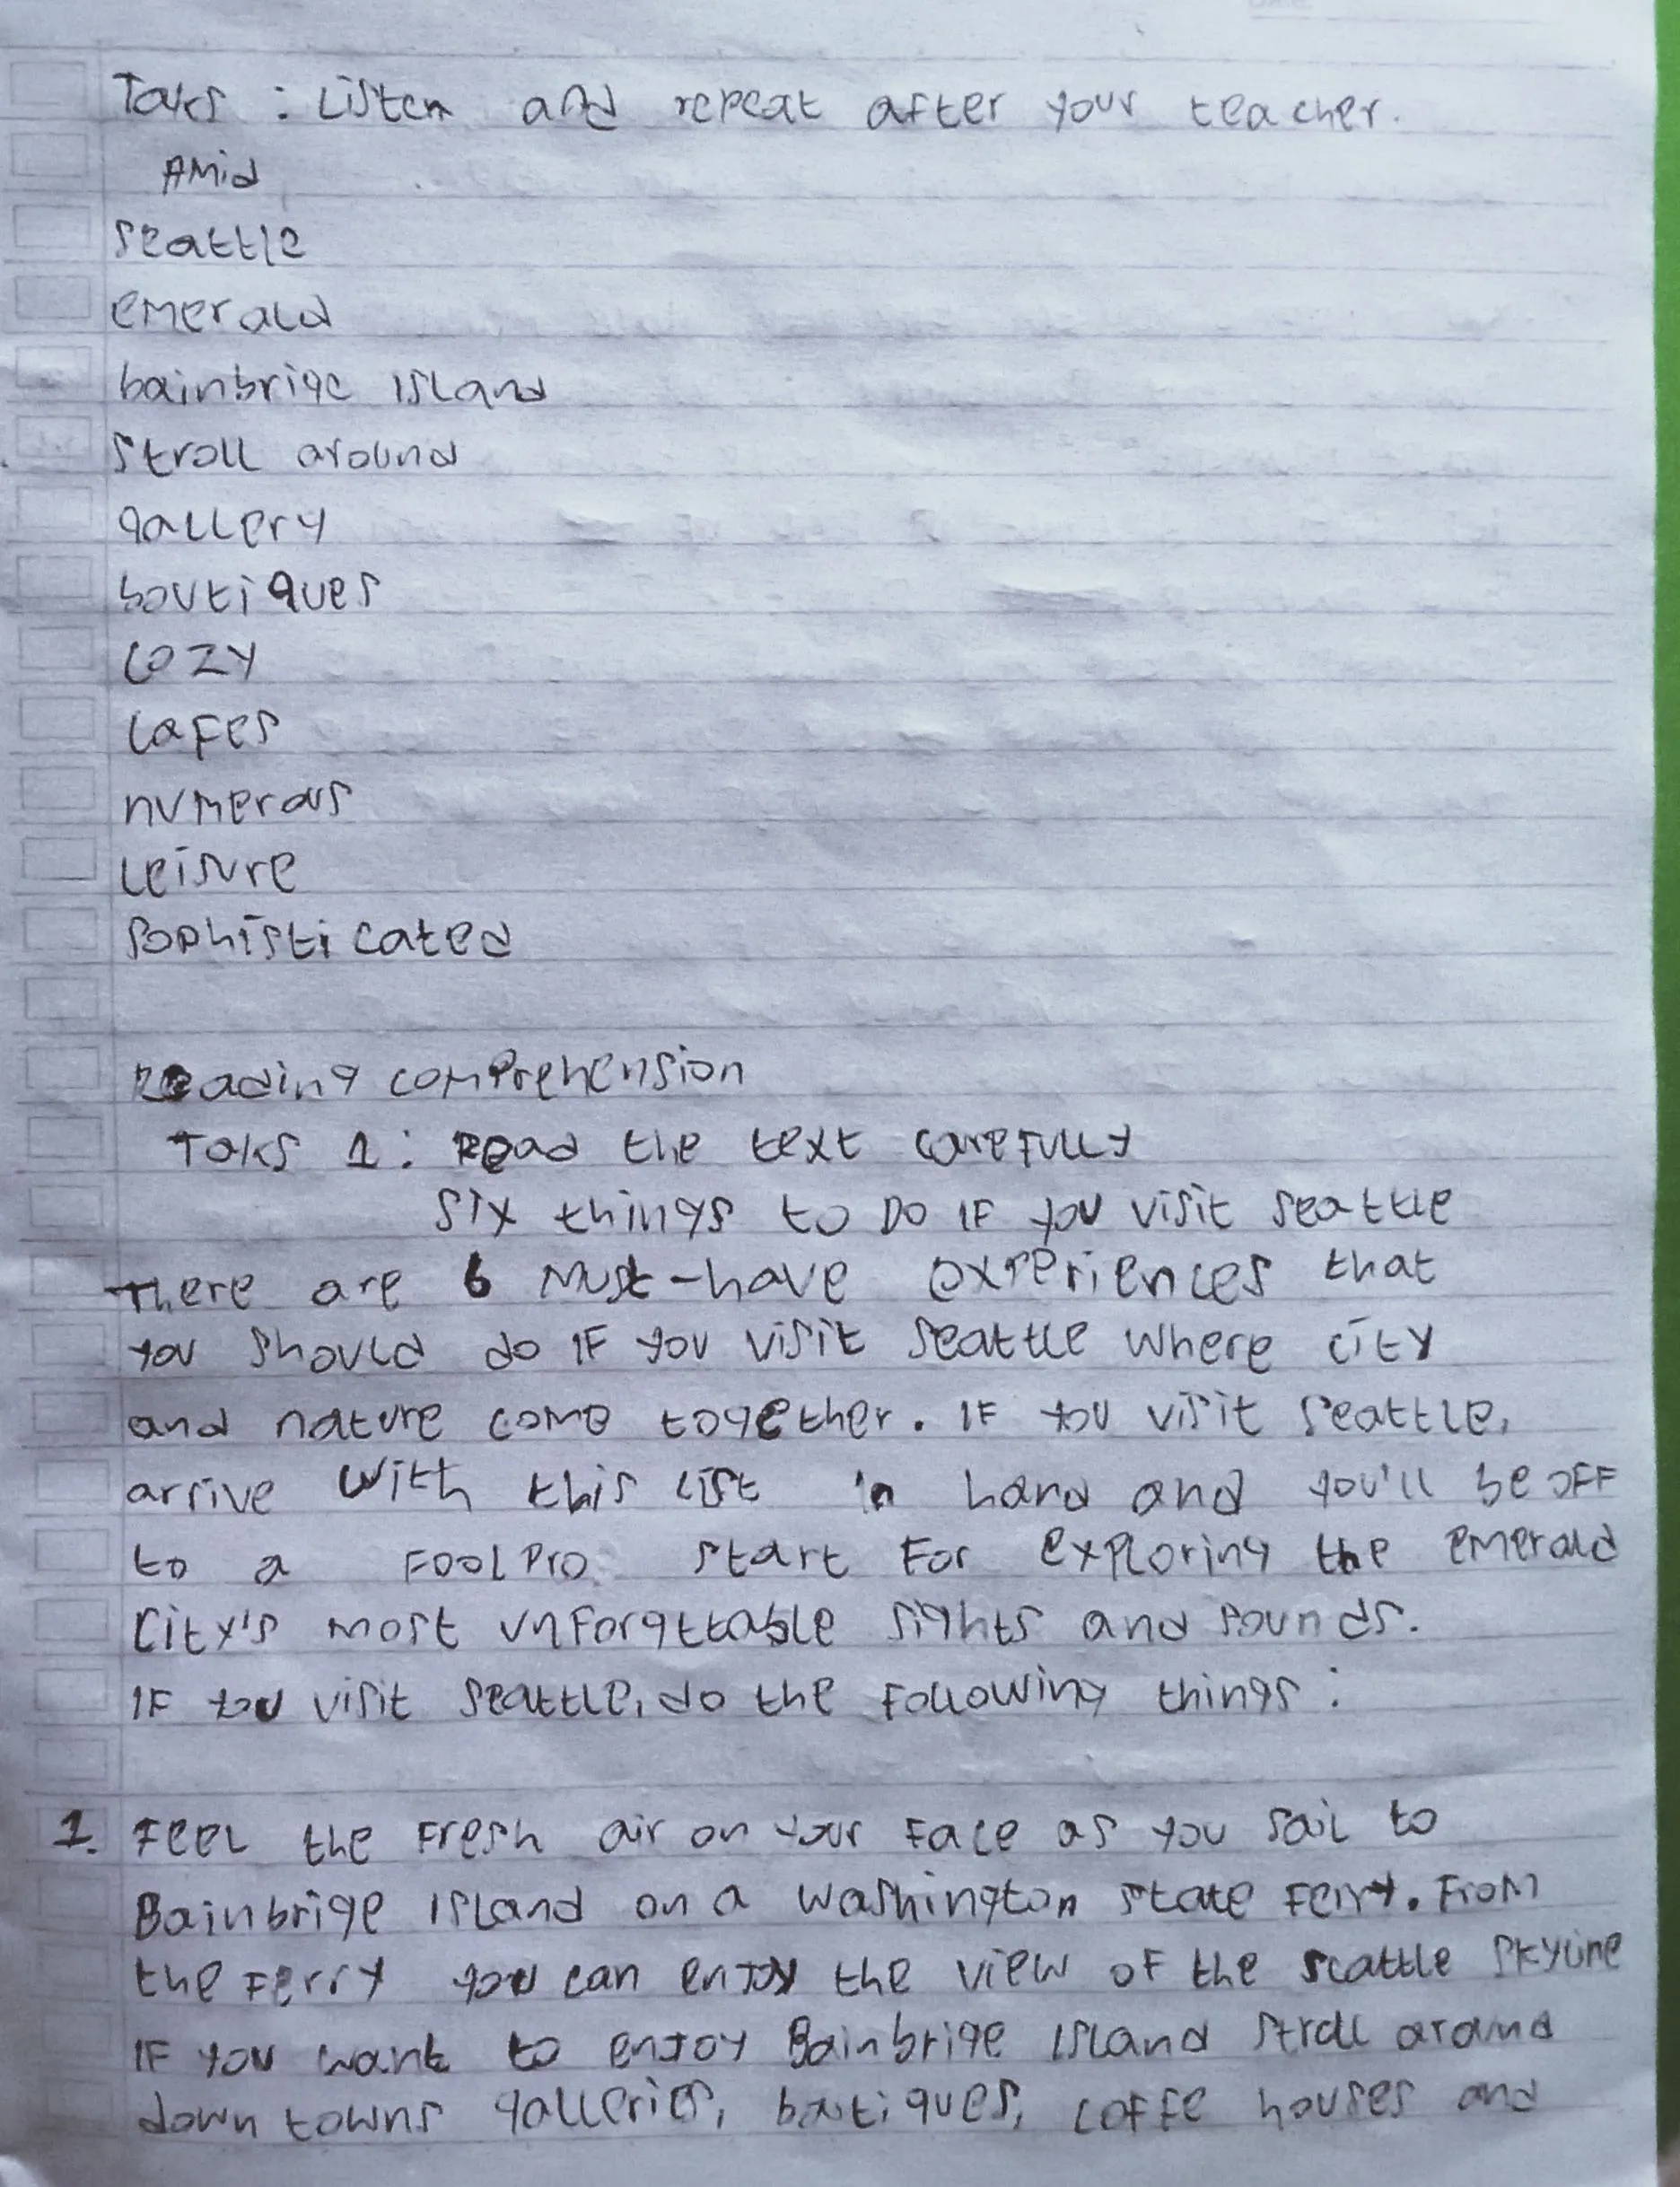 Taks : Listen and repeat after your teacher.
Amid
seattle
emerald
bainbrige island
stroll around
gallery
boutiques
cozy
cafes
numerous
Leisure
sophisticated
Reading comprehension
Taks 1 : Read the text carefully
Six things to Do if you visit seattle
There are 6 must-have experiences that
you should do if you visit seattle where city
and nature come together. if you visit seattle,
arrive with this list in hand and you'll be off
to a foolpro start for exploring the emerald
City's most unforgttable sights and sounds.
if you visit seattle, do the following things :
1. Feel the fresh air on your face as you sail to
Bainbrige island on a washington state ferry. From
the ferry you can enjoy the view of the seattle skyline
if you want to enjoy Bainbrige island stroll around
down towns galleries, boutiques, coffe houses and